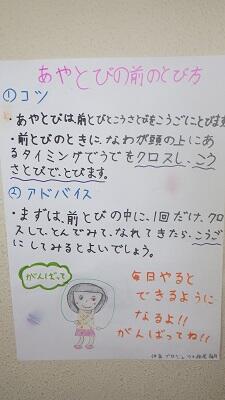 あやとびの前のとび方
①コツ
・あやとびは、前とびとこうさとびをこうごにとびます
・前とびのときに、なわが頭の上にあ
るタイミングでうでをクロスし、こう
さとびで、とびます。
②アドバイス
・まずは、前とびの中に、1回だけ、クロ
スして、とんでみて、なれてきたら、こうご
にしてみるとよいでしょう。
がんばって
毎日やると
できるように
なるよ!!
がんばってね!!